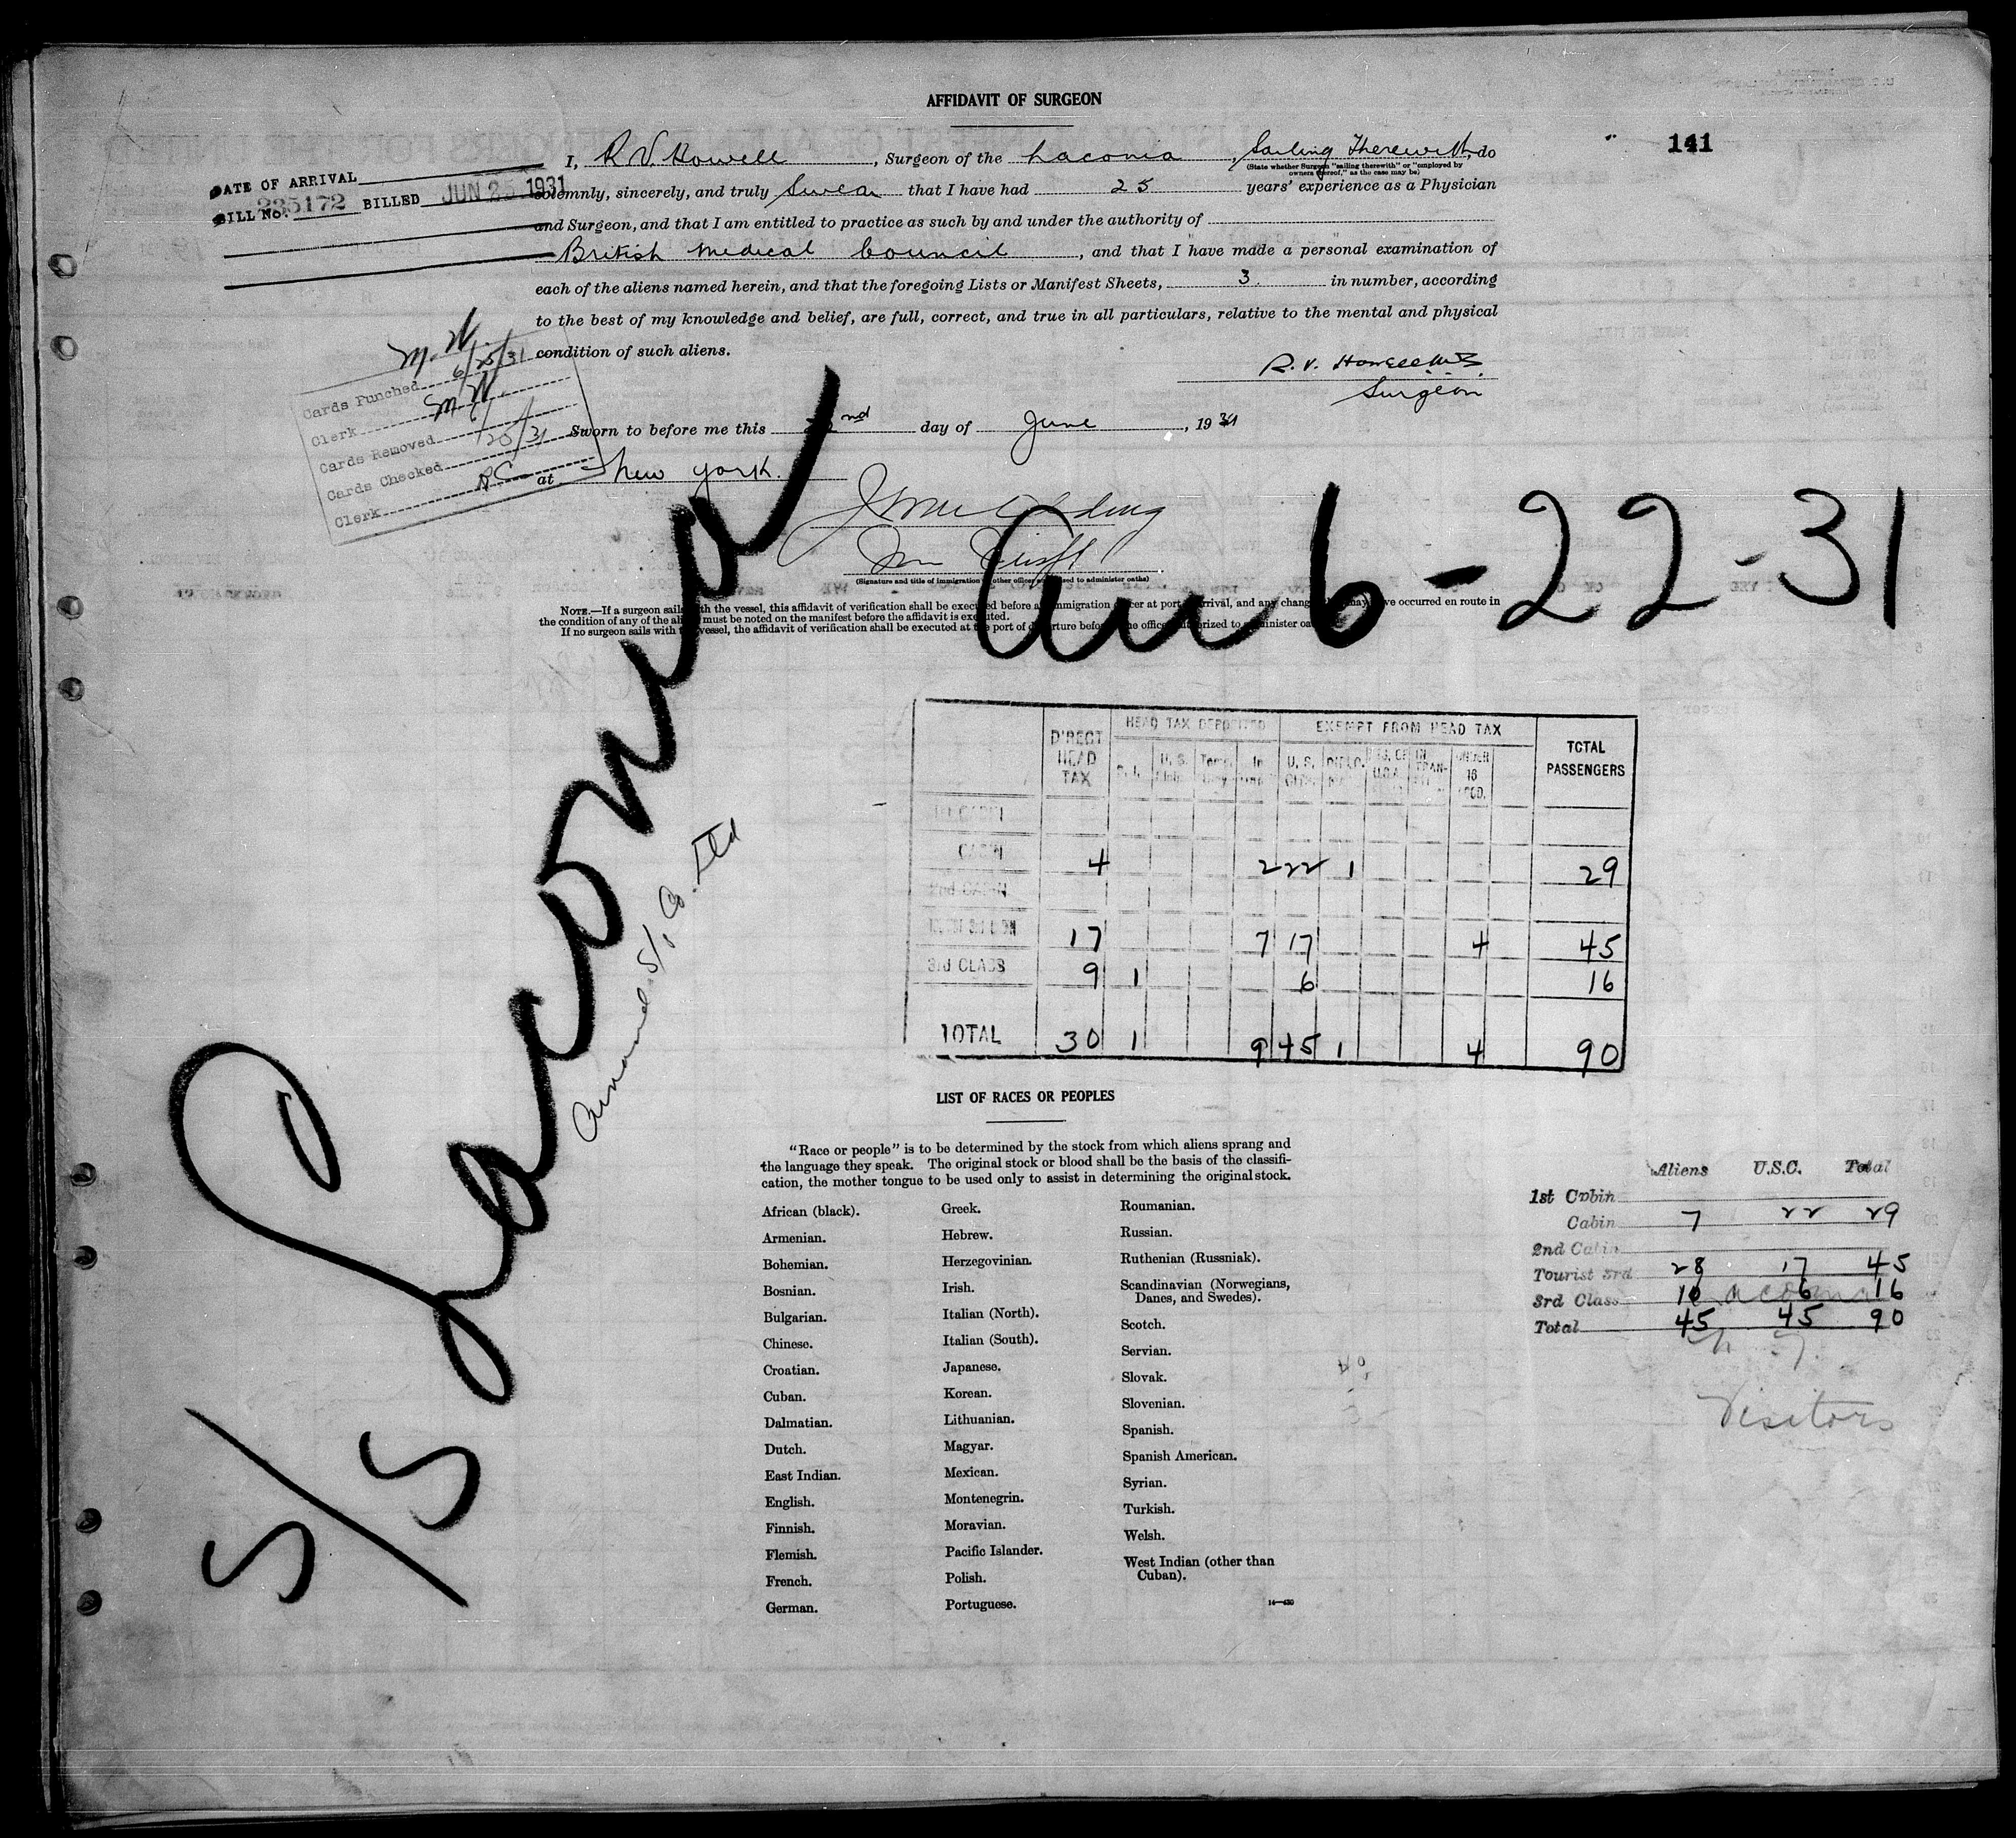 AFFIDAVIT OF SURGEON
141
I, R V. Howell, Surgeon of the Laconia, Sailing Therewith, do
(State whether Surgeon "sailing therewith" or "employed by
owners thereof," as the case may be)
solemnly, sincerely, and truly Swear that I have had 25 years' experience as a Physician
and Surgeon, and that I am entitled to practice as such by and under the authority of
British Medical Council, and that I have made a personal examination of
each of the aliens named herein, and that the foregoing Lists or Manifest Sheets, 3. in number, according
to the best of my knowledge and belief, are full, correct, and true in all particulars, relative to the mental and physical
condition of such aliens.
R. V. Howell M.B.
Surgeon
Sworn to before me this nd day of June, 1931
at New York.
(Signature and title of immigration or other officer authorized to administer oaths)
DATE OF ARRIVAL
BILL No. 235172 BILLED JUN 25 1931
M. W.
Cards Punched 6/25/31
Clerk M W.
Cards Removed
Cards Checked 6/25/31
Clerk
NOTE.—If a surgeon sails with the vessel, this affidavit of verification shall be executed before an immigration officer at port of arrival, and any changes that may have occurred en route in
the condition of any of the aliens must be noted on the manifest before the affidavit is executed.
If no surgeon sails with the vessel, the affidavit of verification shall be executed at the port of departure before the officer authorized to administer oaths.
S/S Laconia
Arr 6-22-31
DIRECT HEAD TAX
HEAD TAX DEPOSITED
EXEMPT FROM HEAD TAX
TOTAL PASSENGERS
U. S. DIPLO. U.S.A. IN TRAN- UNDER 16
1st CABIN
CABIN 4 2 22 1 29
2nd CABIN
17 7 17 4 45
3rd CLASS 9 1 6 16
TOTAL 30 1 9 45 1 4 90
LIST OF RACES OR PEOPLES
"Race or people" is to be determined by the stock from which aliens sprang and
the language they speak. The original stock or blood shall be the basis of the classifi-
cation, the mother tongue to be used only to assist in determining the original stock.
African (black).
Armenian.
Bohemian.
Bosnian.
Bulgarian.
Chinese.
Croatian.
Cuban.
Dalmatian.
Dutch.
East Indian.
English.
Finnish.
Flemish.
French.
German.
Greek.
Hebrew.
Herzegovinian.
Irish.
Italian (North).
Italian (South).
Japanese.
Korean.
Lithuanian.
Magyar.
Mexican.
Montenegrin.
Moravian.
Pacific Islander.
Polish.
Portuguese.
Roumanian.
Russian.
Ruthenian (Russniak).
Scandinavian (Norwegians,
Danes, and Swedes).
Scotch.
Servian.
Slovak.
Slovenian.
Spanish.
Spanish American.
Syrian.
Turkish.
Welsh.
West Indian (other than
Cuban).
Aliens U.S.C. Total
1st Cabin
Cabin 7 22 29
2nd Cabin
Tourist 3rd 28 17 45
3rd Class 10 6 16
Total 45 45 90
Visitors